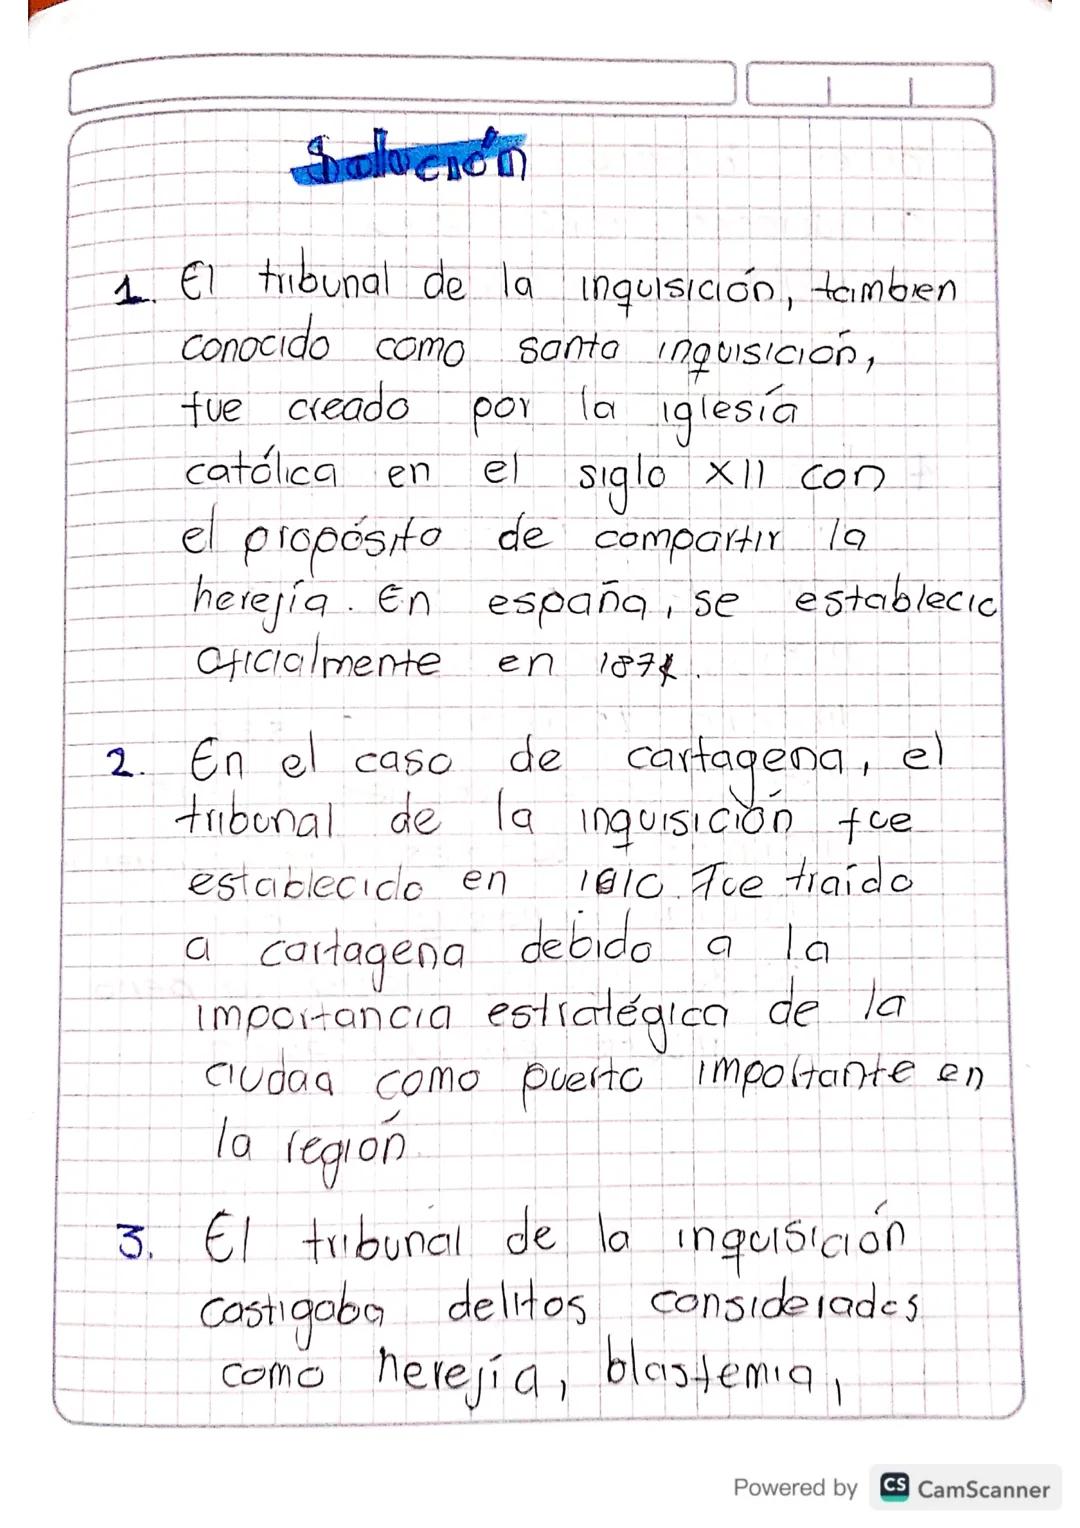 Solución
1. El tribunal de la inquisición, tambien
conocido como santa inquisición,
fue creado por la iglesía
católica en el siglo XII con
el propósito de compartir la
herejía. En españa, se establecic
oficialmente en 187
2. En el caso de cartagena, el
tribunal de la inquisición fue
establecido en 1610. Fue traído
a cartagena debido a la
importancia estratégica de la
ciudad como puerto importante en
la región.
3. El tribunal de la inquisición
castigaba delitos considerados
como herejía, blasfemia,
Powered by CS CamScanner